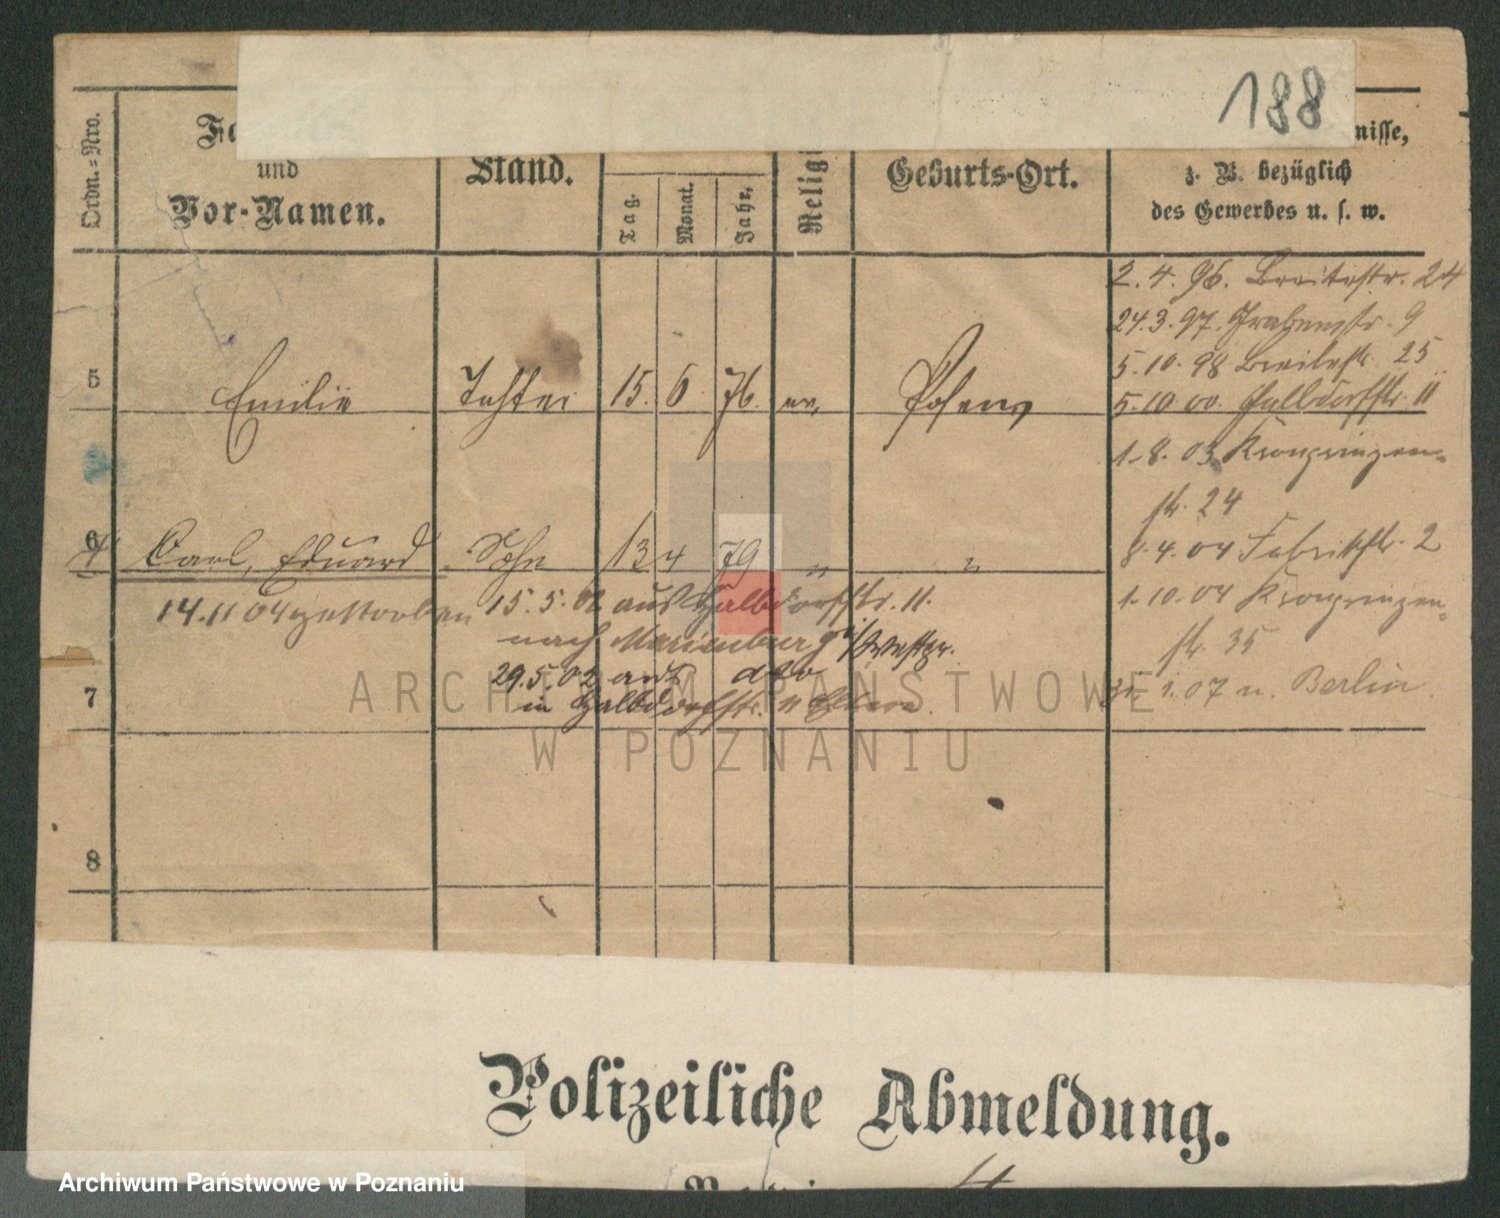 188
Ordn.-Nro.
und
Vor-Namen.
Stand.
Tag.
Monat.
Jahr.
Religi
Geburts-Ort.
nisse,
z. B. bezüglich
des Gewerbes u. s. w.
2. 4. 96. Breitestr. 24
24. 3. 97. Grabenstr. 9
5. 10. 98 Breitestr. 25
5. 10 00. Halbdorfstr. 11
5 Emilie Tochter 15. 6. 76. ev. Posen
1. 8. 03 Kronprinzen-
str. 24
6 Carl, Eduard Sohn 13 4 79 " "
8. 4. 04 Fabrikstr. 2
14. 11 04 gestorben
15. 5. 02 aus Halbdorfstr. 11.
nach Marienburg i/Westpr.
29. 5. 02 aus dto
in Halbdorfstr. 11 Eltern
1. 10. 04 Kronprinzen-
str. 35
1. 07 n. Berlin.
7
8
ARCHIWUM PAŃSTWOWE
W POZNANIU
Polizeiliche Abmeldung.
Archiwum Państwowe w Poznaniu